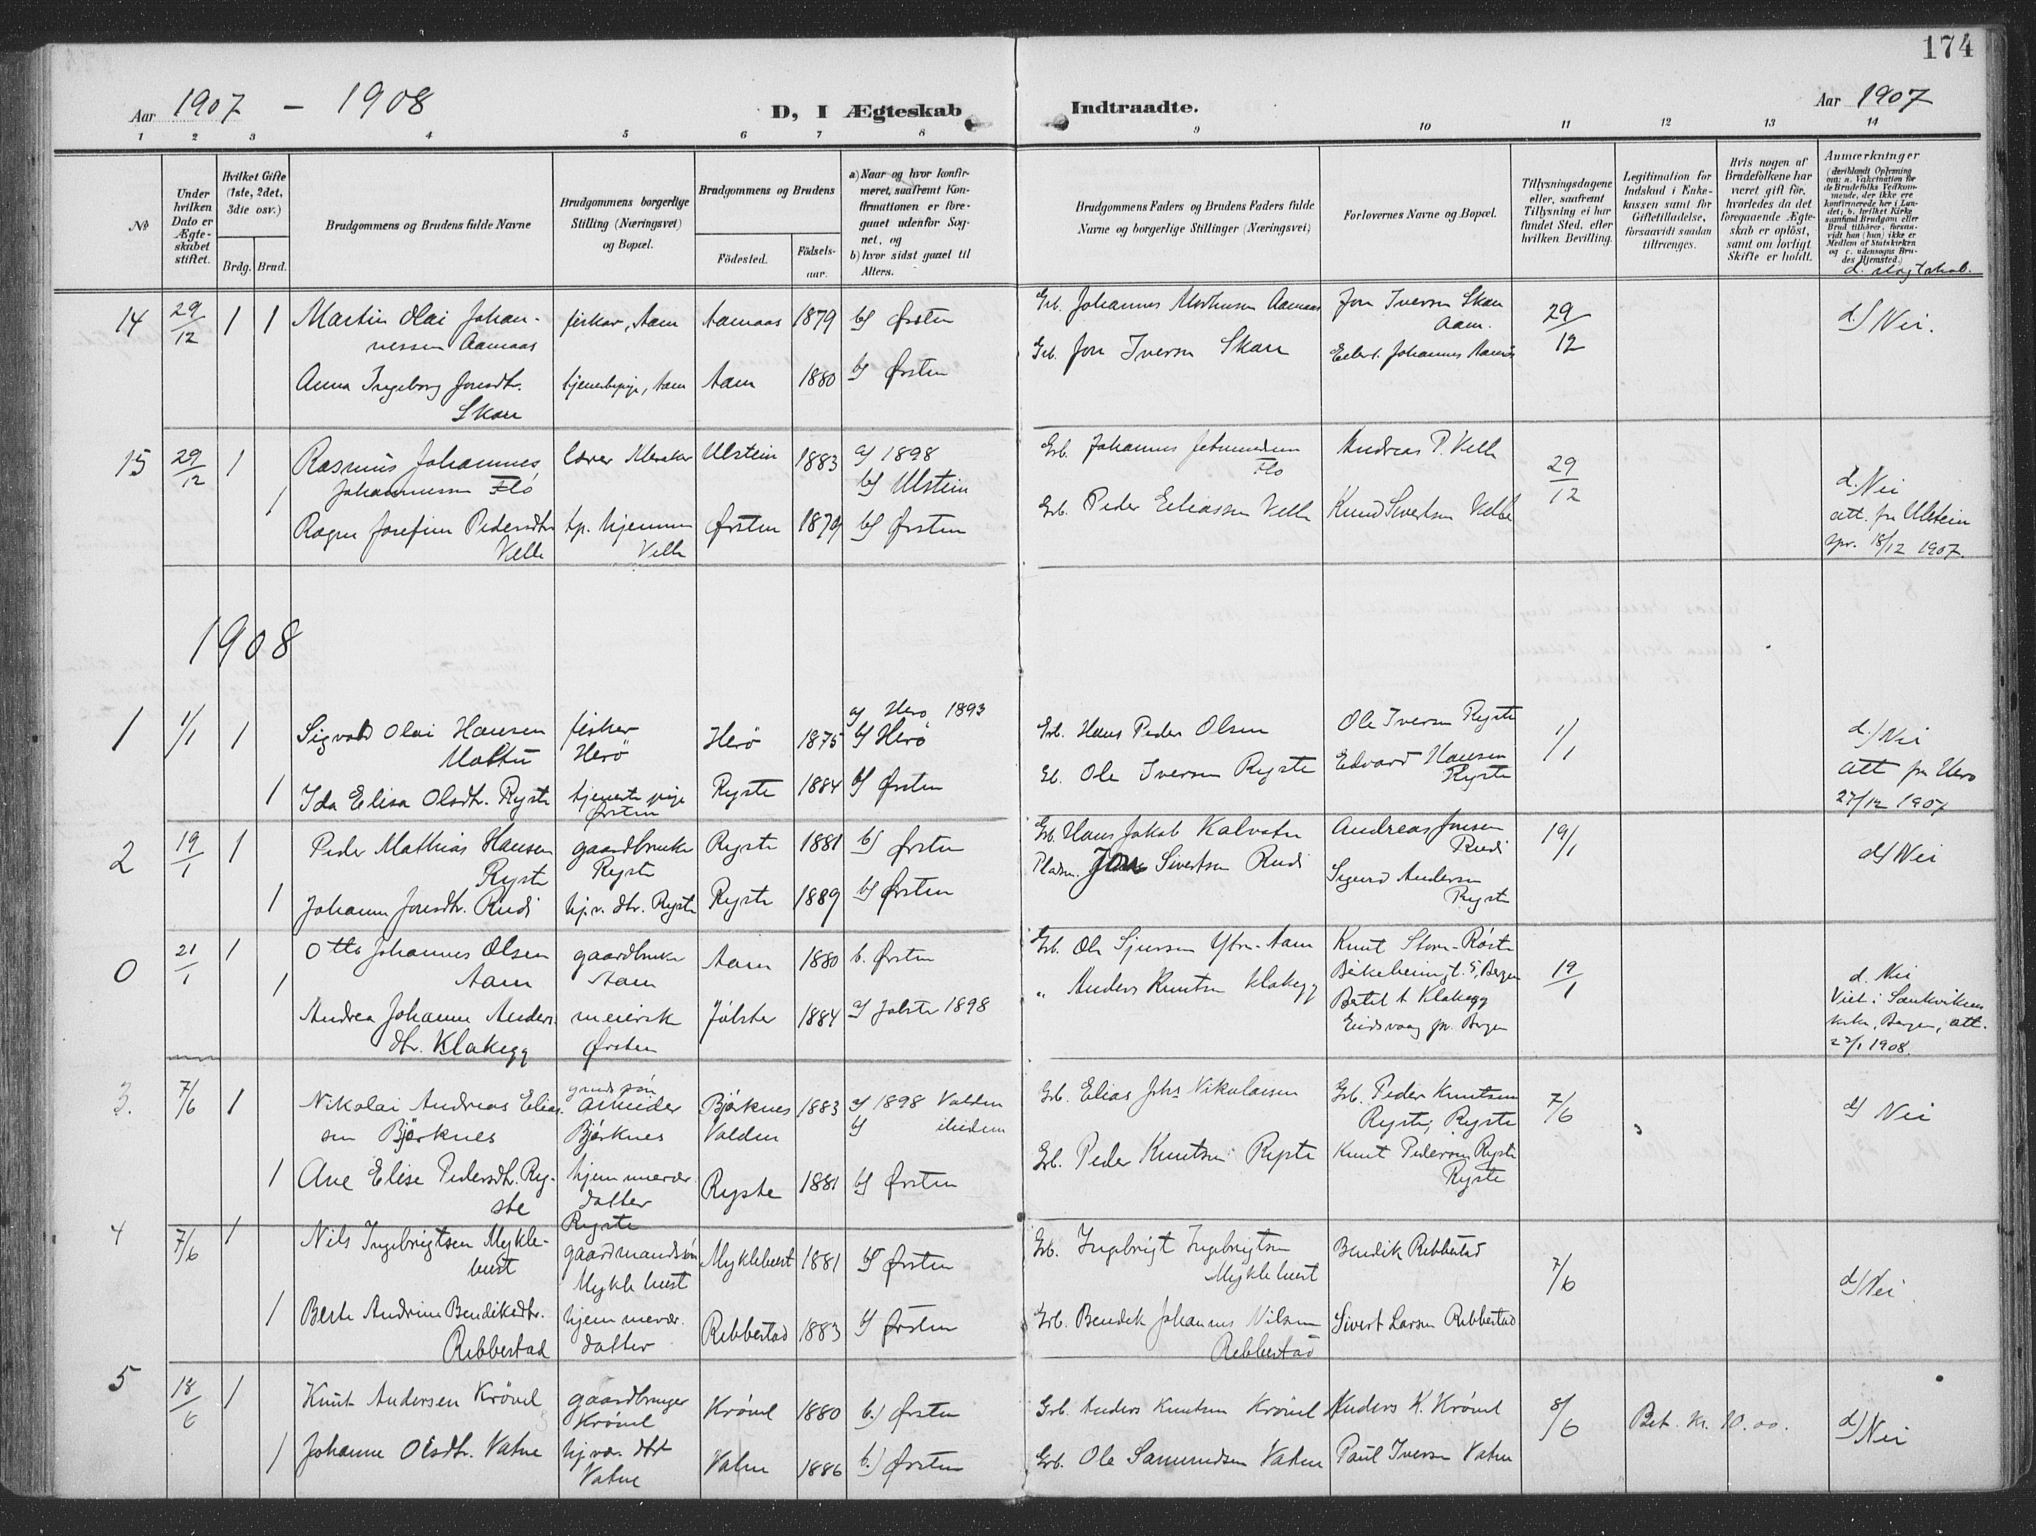 174
Aar 1907 - 1908
D, I Ægteskab Indtraadte.
Aar 1907
1 2 3 4 5 6 7 8 9 10 11 12 13 14
№
Under hvilken Dato er Ægteskabet stiftet.
Hvilket Gifte (1ste, 2det, 3die osv.)
Brdg. Brud.
Brudgommens og Brudens fulde Navne
Brudgommens borgerlige Stilling (Næringsvei) og Bopæl.
Brudgommens og Brudens
Fødested.
Fødselsaar.
a) Naar og hvor konfirmeret, saafremt Konfirmationen er foregaaet udenfor Sognet, og
b) hvor sidst gaaet til Alters.
Brudgommens Faders og Brudens Faders fulde Navne og borgerlige Stillinger (Næringsvei)
Forlovernes Navne og Bopæl.
Tillysningsdagene eller, saafremt Tillysning ei har fundet Sted, efter hvilken Bevilling.
Legitimation for Indskud i Enkekassen samt for Giftetilladelse, forsaavidt saadan tiltrænges.
Hvis nogen af Brudefolkene har været gift før, hvorledes da det foregaaende Ægteskab er opløst, samt om lovligt Skifte er holdt.
Anmærkninger
(deriblandt Oplysning om: a. Vakcination for de Brudefolks Vedkommende, der ikke ere konfirmerede her i Landet; b. hvilket Kirkesamfund Brudgom eller Brud tilhører, forsaavidt han (hun) ikke er Medlem af Statskirken og c. udensogns Brudes Hjemsted.)
d. slægtskab.
14 29/12 1 1 Martin Olai Johannessen Aamaas fisker, Aam Aamaas 1879 b) Ørsten
Grb. Johannes Aamaas Jon Iversen Skare Aam. 29/12 d) Nei.
Anna Ingeborg Jonsdtr. Skare tjenestepige, Aam Aam 1880 b) Ørsten
Grb. Jon Iversen Skare Johannes
15 29/12 1 Rasmus Johannes Johannessen Flø lærer Ulstein 1883 a) 1898 b) Ulstein
Grb. Johannes Flø Andreas P. Velle 29/12 d. Nei att. fra Ulstein spr. 18/12 1907.
1 Ragna Josefine Pedersdtr Velle hjemme Velle Ørsten 1879 b) Ørsten
Grb. Peder Eliassen Velle Knud Sivertsen Velle
1908
1 1/1 1 Sigvald Olai Hansen fisker Herø Herø 1875 a) Herø 1893 b) Herø
Grb. Hans Peder Olsen Ole Iversen Ryste 1/1 d.) Nei att fra Herø 27/12 1907
1 Ida Elisa Olsdtr. Ryste tjenestepige Ørsten Ryste 1884 b) Ørsten
Ole Iversen Ryste Edvard Hansen Ryste
2 19/1 1 Peder Mathias Hansen Ryste gaardbruker Ryste Ryste 1881 b) Ørsten
Grb. Hans Jakob Kalvatn Andreas Jonsen Rudi 19/1 d) Nei
1 Johanne Jonsdtr. Rudi hj.v. dtr. Ryste Ryste 1889 b) Ørsten
Pladsm. Jon Sivertsen Rudi Sigurd Andersen Ryste
0 21/1 1 Otto Johannes Olsen Aam gaardbruker Aam Aam 1880 b. Ørsten
Grb. Ole Sjursen Ytre-Aam Knut 5, Bergen 19/1 d. Nei Viet i Sandvikens kirke, Bergen, att. 22/1 1908.
1 Andrea Johanne Andersdtr. Klakegg meierisk Ørsten Jølster 1884 a) Jølster 1898
" Anders Knutsen Klakegg Bertel A Klakegg Eidsvaag pr. Bergen
3. 7/6 1 Nikolai Andreas Eliassen Bjørknes arbeider Bjørknes Bjørknes Volden 1883 a) 1898 Volden b) ibidem
Grb. Elias Johs Nikolaisen Grb. Peder Knutsen Ryste, Ryste 7/6 d) Nei
1 Ane Elise Pedersdtr. Ryste hjemmevær. datter Ryste Ryste 1881 b) Ørsten
Grb. Peder Knutsen Ryste Knut Pedersen Ryste Ryste
4 7/6 1 Nils Ingebrigtsen Myklebust gaardmandssøn Myklebust Myklebust 1881 b) Ørsten
Grb. Ingebrigt Ingebrigtsen Myklebust Bendik Ribbestad 7/6 d) Nei
1 Berte Andrine Bendiksdtr. Ribbestad hjemmevær. datter Ribbestad 1883 b) Ørsten
Grb. Bendik Johannes Nilsen Ribbestad Sivert Larsen Ribbestad
5 18/6 1 Knut Andersen Krövel gaardbruger Krövel Krövel 1880 b.) Ørsten
Grb. Anders Knutsen Krövel Anders K. Krövel 8/6 Bet. kr. 10.00. d) Nei
1 Johanne Olsdtr. Vatne hj.vær. dtr Vatne Vatne 1886 b.) Ørsten
Grb. Ole Samundsen Vatne Paul Iversen Vatne